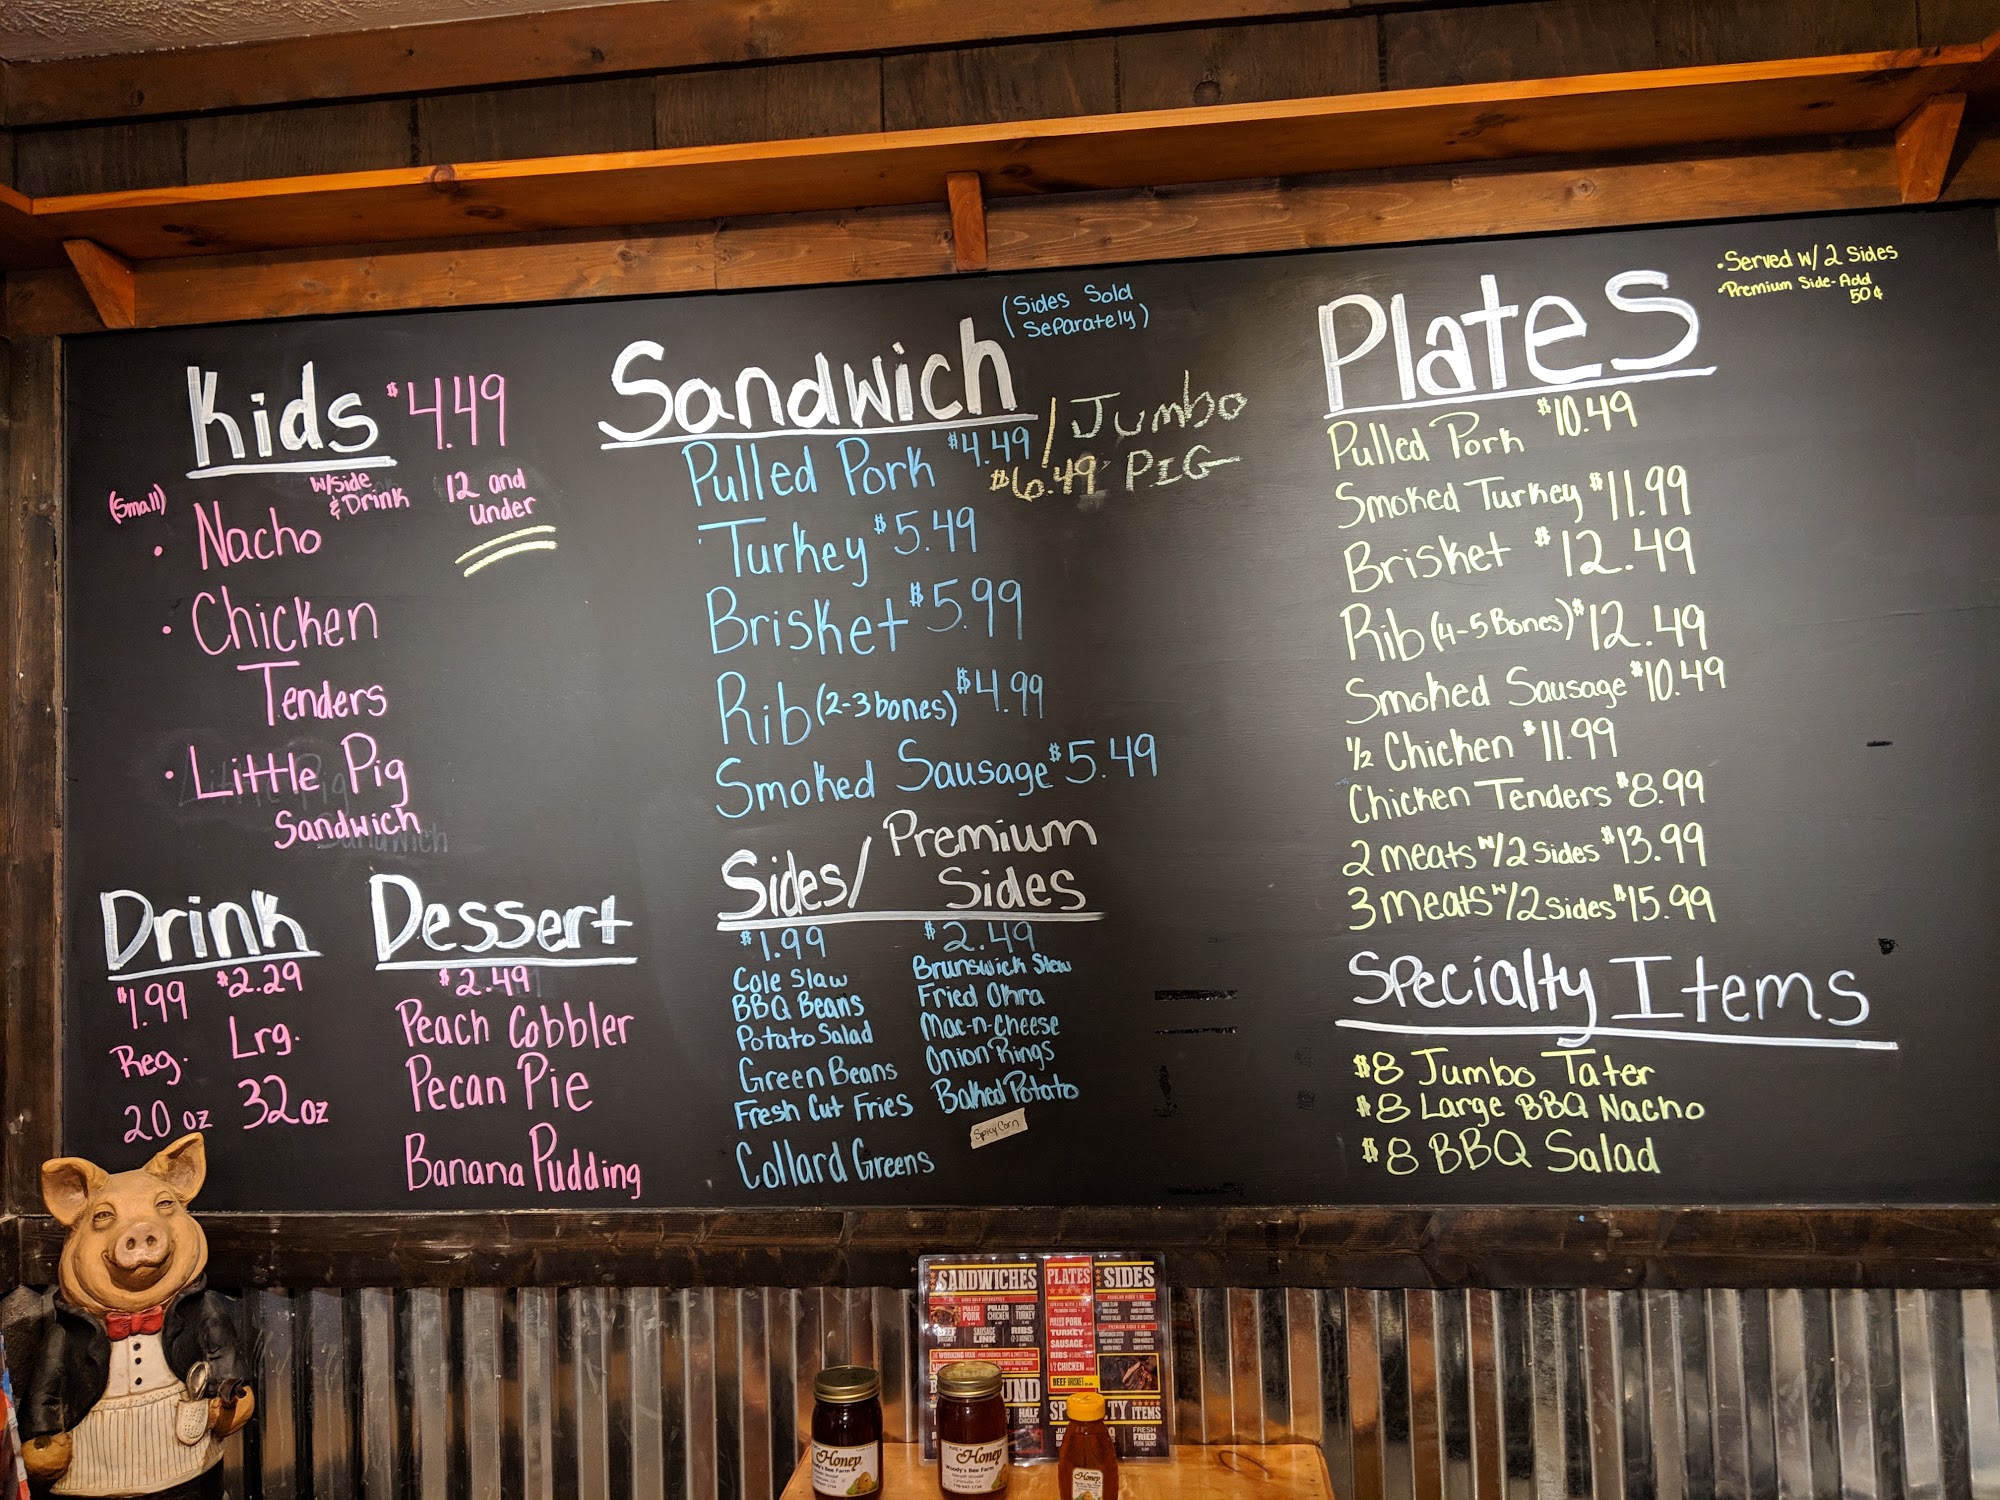 Kids $4.49
w/Side
& Drink
12 and
under
(Small)
• Nacho
• Chicken
Tenders
• Little Pig
Sandwich
Drink
$1.99 $2.29
Reg. Lrg.
20 oz 32oz
Dessert
$2.49
Peach Cobbler
Pecan Pie
Banana Pudding
Sandwich
(Sides Sold
Separately)
Pulled Pork $4.49 / Jumbo
$6.49 PIG
Turkey $5.49
Brisket $5.99
Rib (2-3 bones) $4.99
Smoked Sausage $5.49
Sides/ Premium
Sides
$1.99
Cole Slaw
BBQ Beans
Potato Salad
Green Beans
Fresh Cut Fries
Collard Greens
$2.49
Brunswick Stew
Fried Okra
Mac-n-Cheese
Onion Rings
Baked Potato
Spicy Corn
Plates
• Served w/ 2 Sides
• Premium Side-Add
50¢
Pulled Pork $10.49
Smoked Turkey $11.99
Brisket $12.49
Rib (4-5 Bones) $12.49
Smoked Sausage $10.49
1/2 Chicken $11.99
Chicken Tenders $8.99
2 meats w/2 Sides $13.99
3 meats w/2 Sides $15.99
Specialty Items
$8 Jumbo Tater
$8 Large BBQ Nacho
$8 BBQ Salad
SANDWICHES
PULLED PORK
PULLED CHICKEN
SMOKED TURKEY
SAUSAGE LINK
RIBS
PLATES
PULLED PORK
TURKEY
SAUSAGE
RIBS
1/2 CHICKEN
BEEF BRISKET
SIDES
HALF
CHICKEN
ITEMS
FRESH
FRIED
Honey
Woody's Bee Farm
Honey
Woody's Bee Farm
Honey